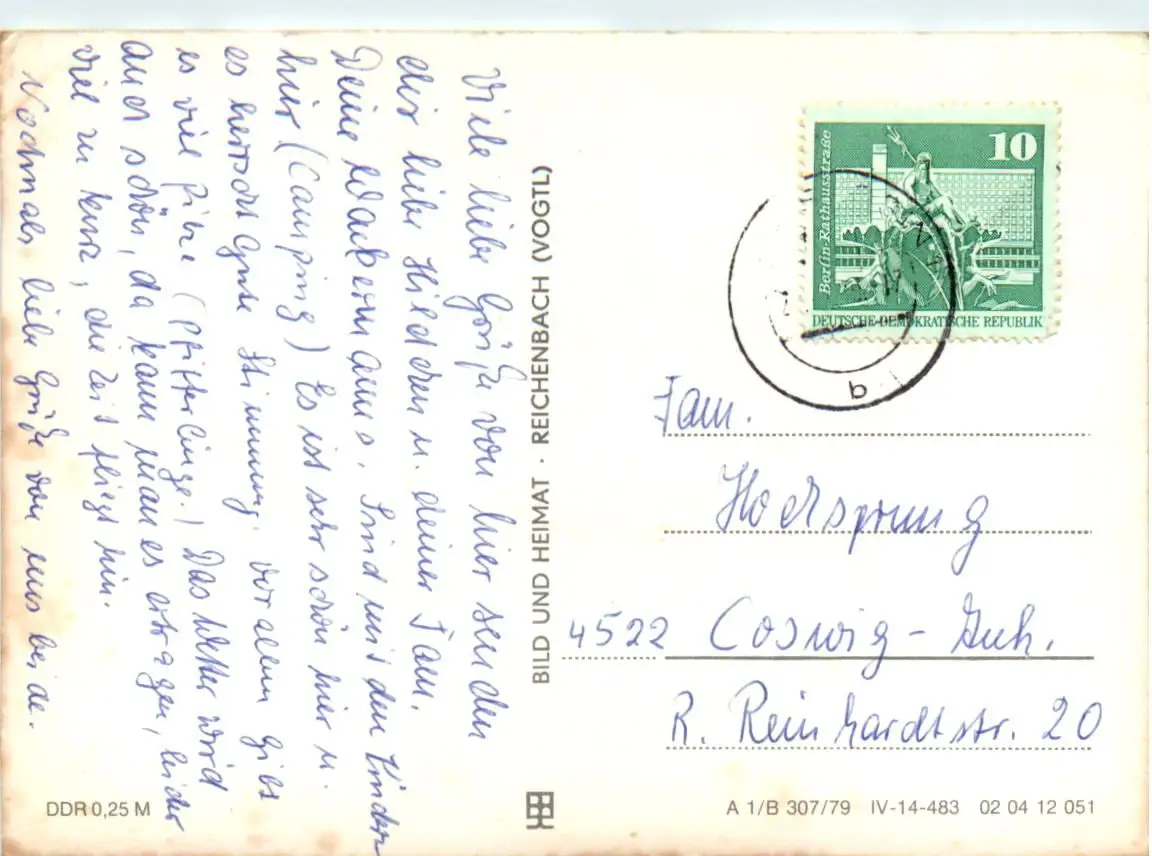 Viele liebe Grüße von hier senden
dir liebe Hildchen u. deiner Fam.
Deine Wackermanns. Sind mit den Kindern
hier (Camping) Es ist sehr schön hier u.
es herrscht Gute Stimmung. vor allem gibs
es viel Pilze (Pfifferlinge.) Das Wetter wird
auch schön, da kann man es ertragen, leider
viel zu kurz, die Zeit fliegt hin.
Nochmals liebe Grüße von uns beide.
BILD UND HEIMAT · REICHENBACH (VOGTL)
10
Berlin-Rathausstraße
DEUTSCHE DEMOKRATISCHE REPUBLIK
Fam.
Hochsprung
4522 Coswig - Anh.
R. Reinhardtstr. 20
DDR 0,25 M
A 1/B 307/79 IV-14-483 02 04 12 051